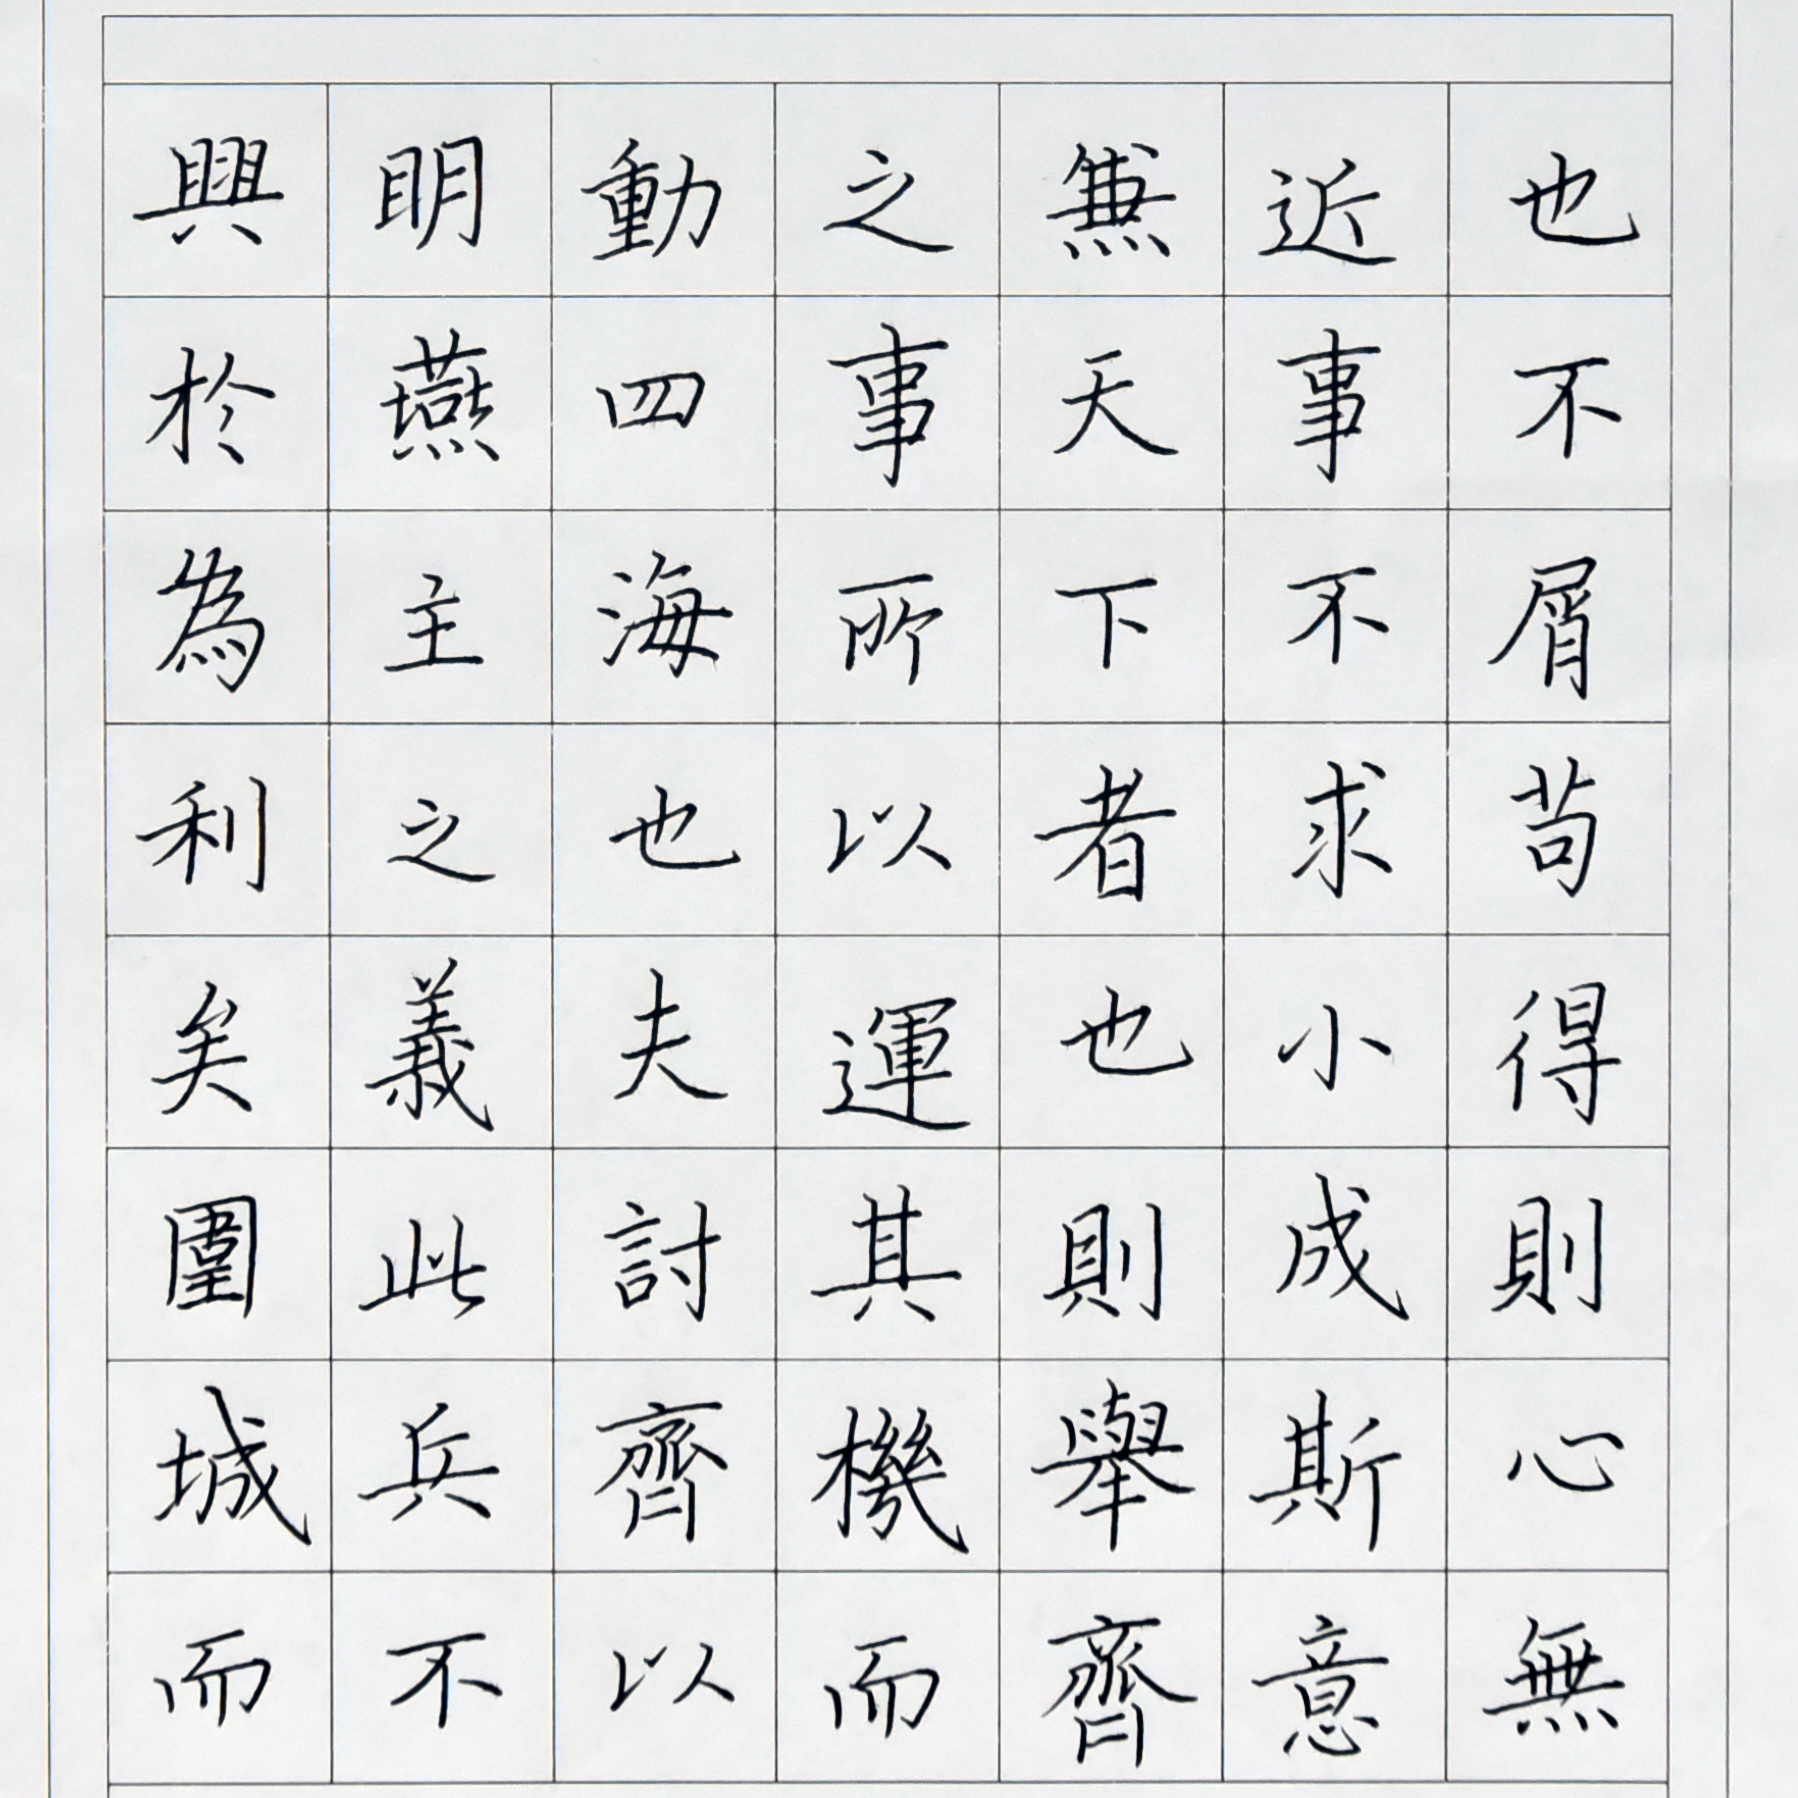 也不屑苟得則心無
近事不求小成斯意
兼天下者也則舉齊
之事所以運其機而
動四海也夫討齊以
明燕主之義此兵不
興於為利矣圍城而